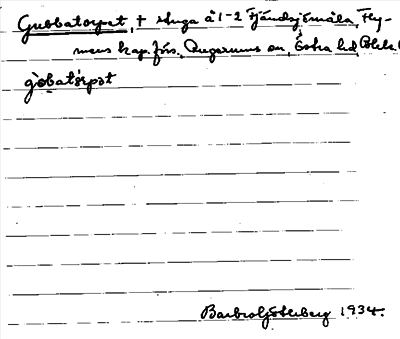 Gubbatorpet, † stuga å 1-2 Fjändsjömåla, Fly-
mens kap.förs., Augerums sn, Östra hd, Blek.
gòbatórpət
Barbro Söderberg 1934.